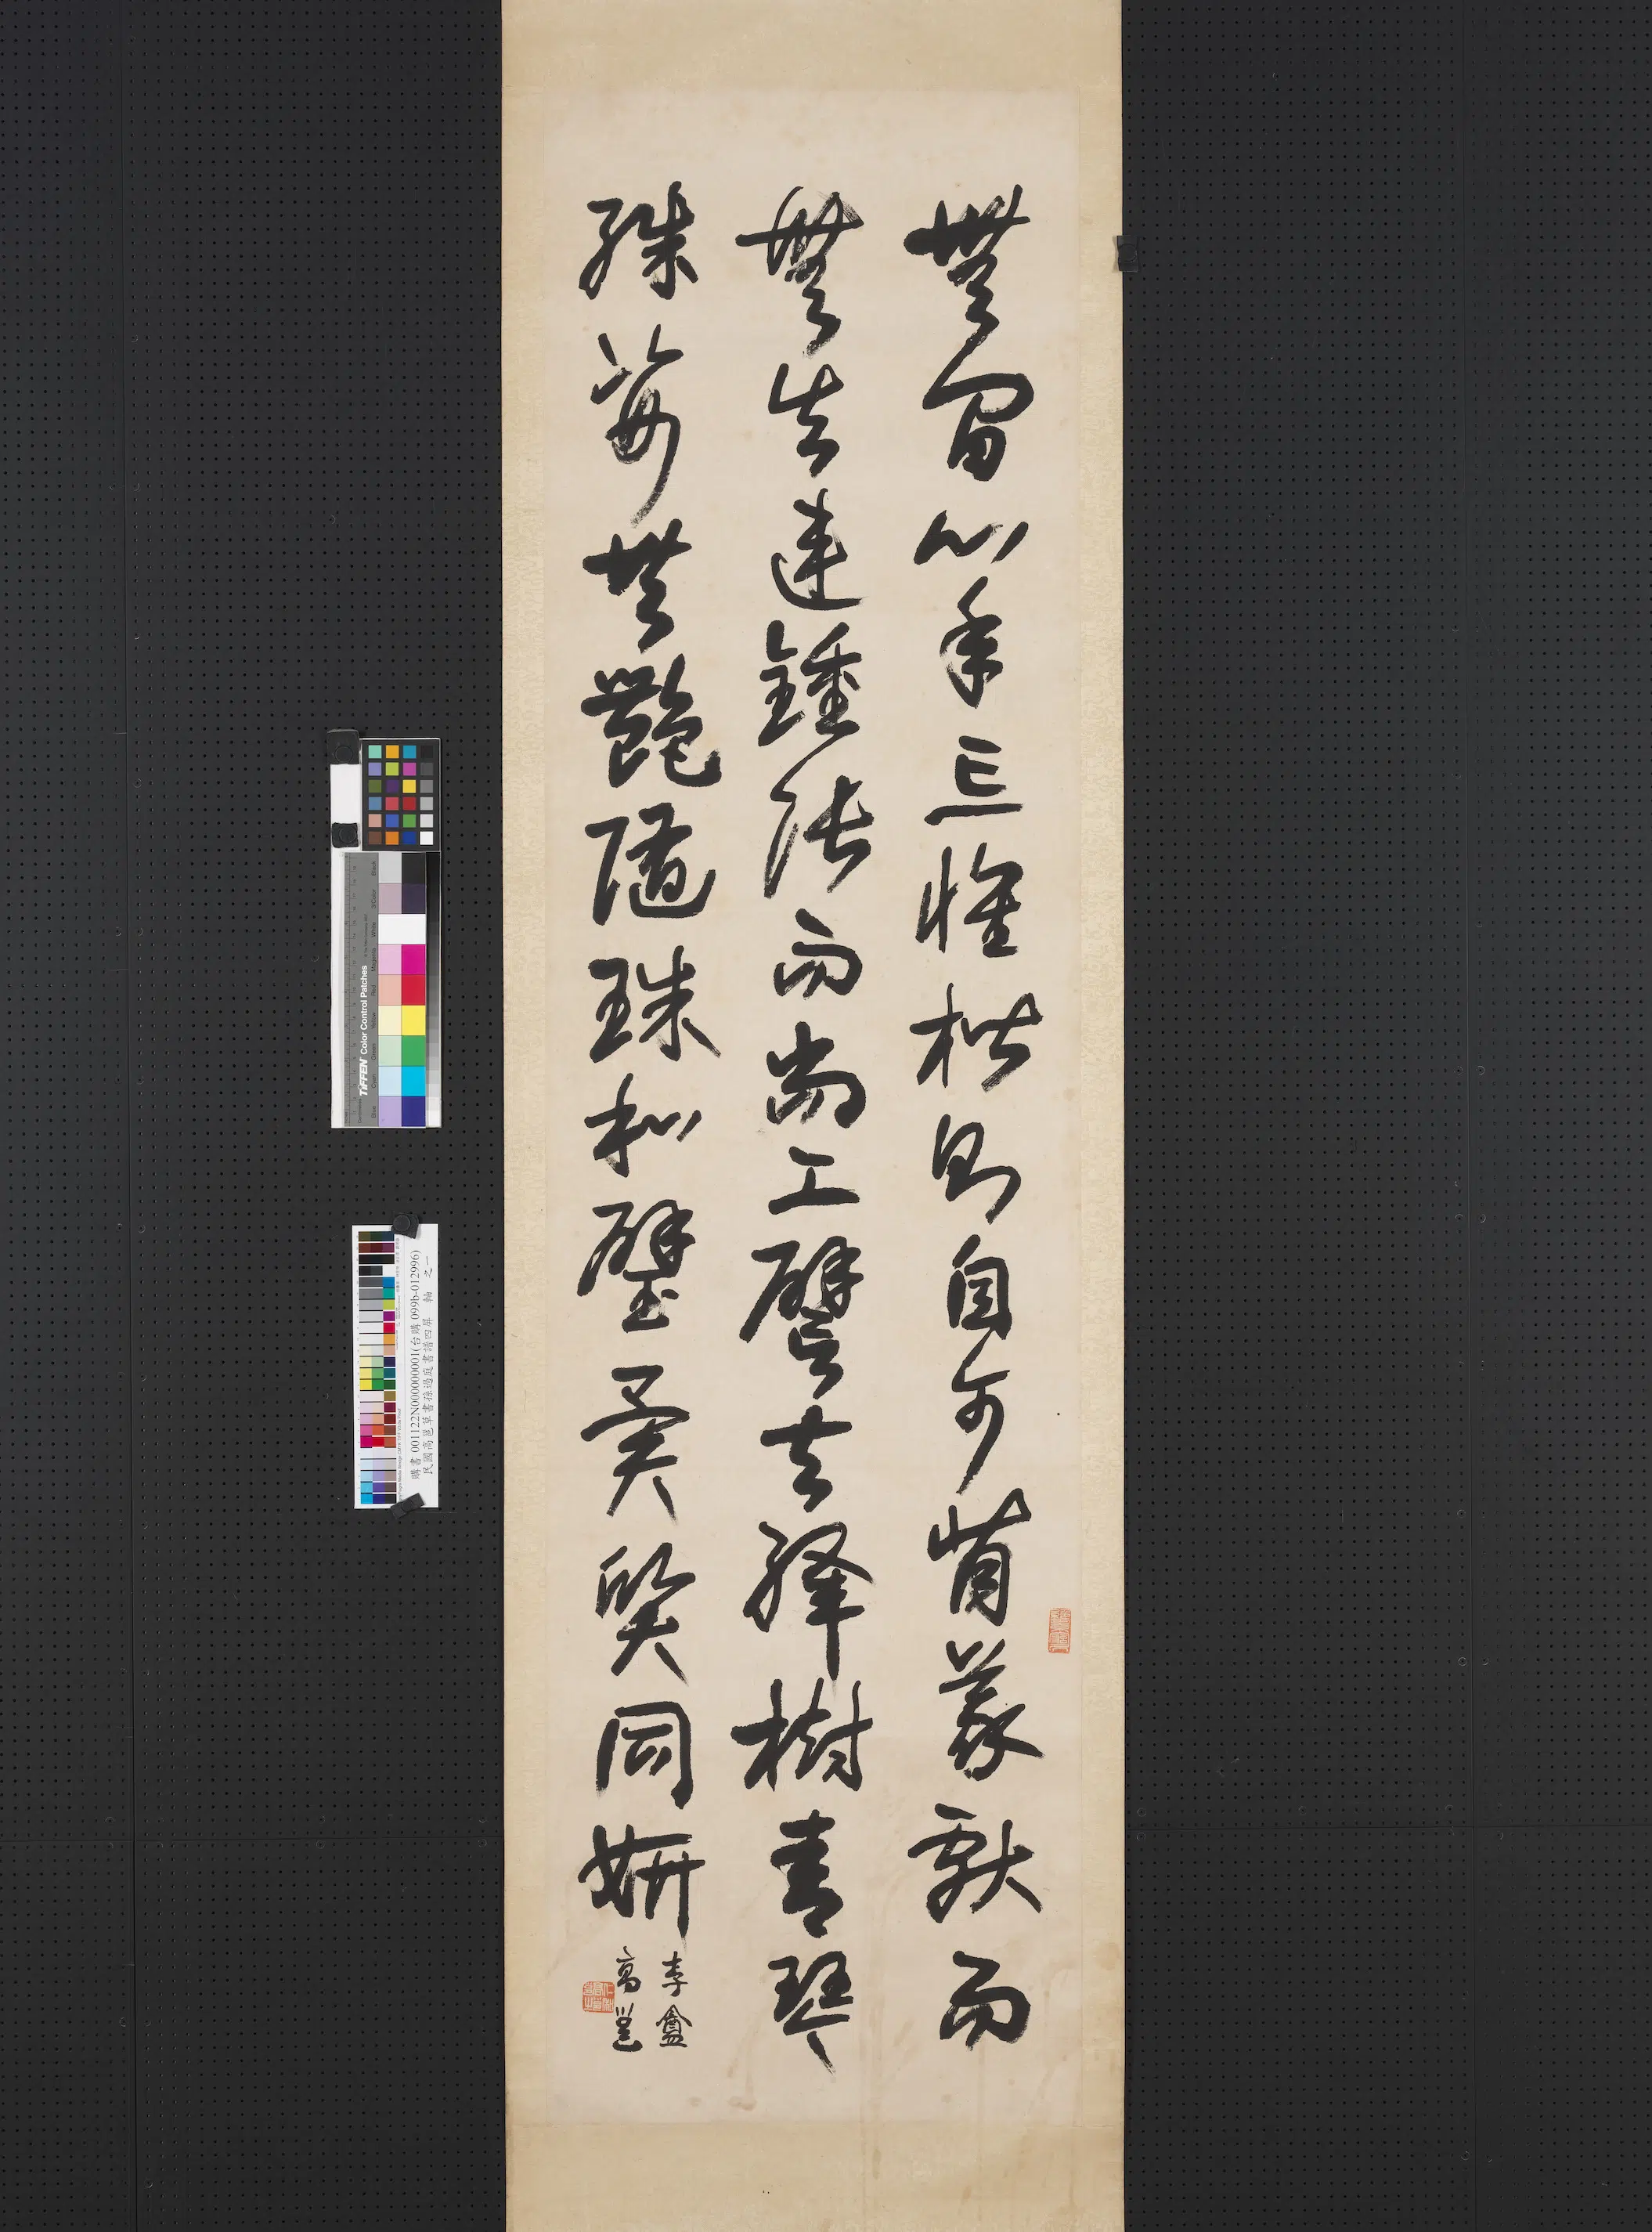 無間心手忘懷楷則自可背羲獻而
無失違鍾張而尚工譬夫絳樹青琴
殊姿共艷隨珠和璧異質同妍
李盦
高邕
TIFFEN Color Control Patches
Blue Cyan Green Yellow Red Magenta White 3/Color Black
購書 001122N000000001(台購 099b-012996)
民國高邕草書孫過庭書譜四屏 軸 之一